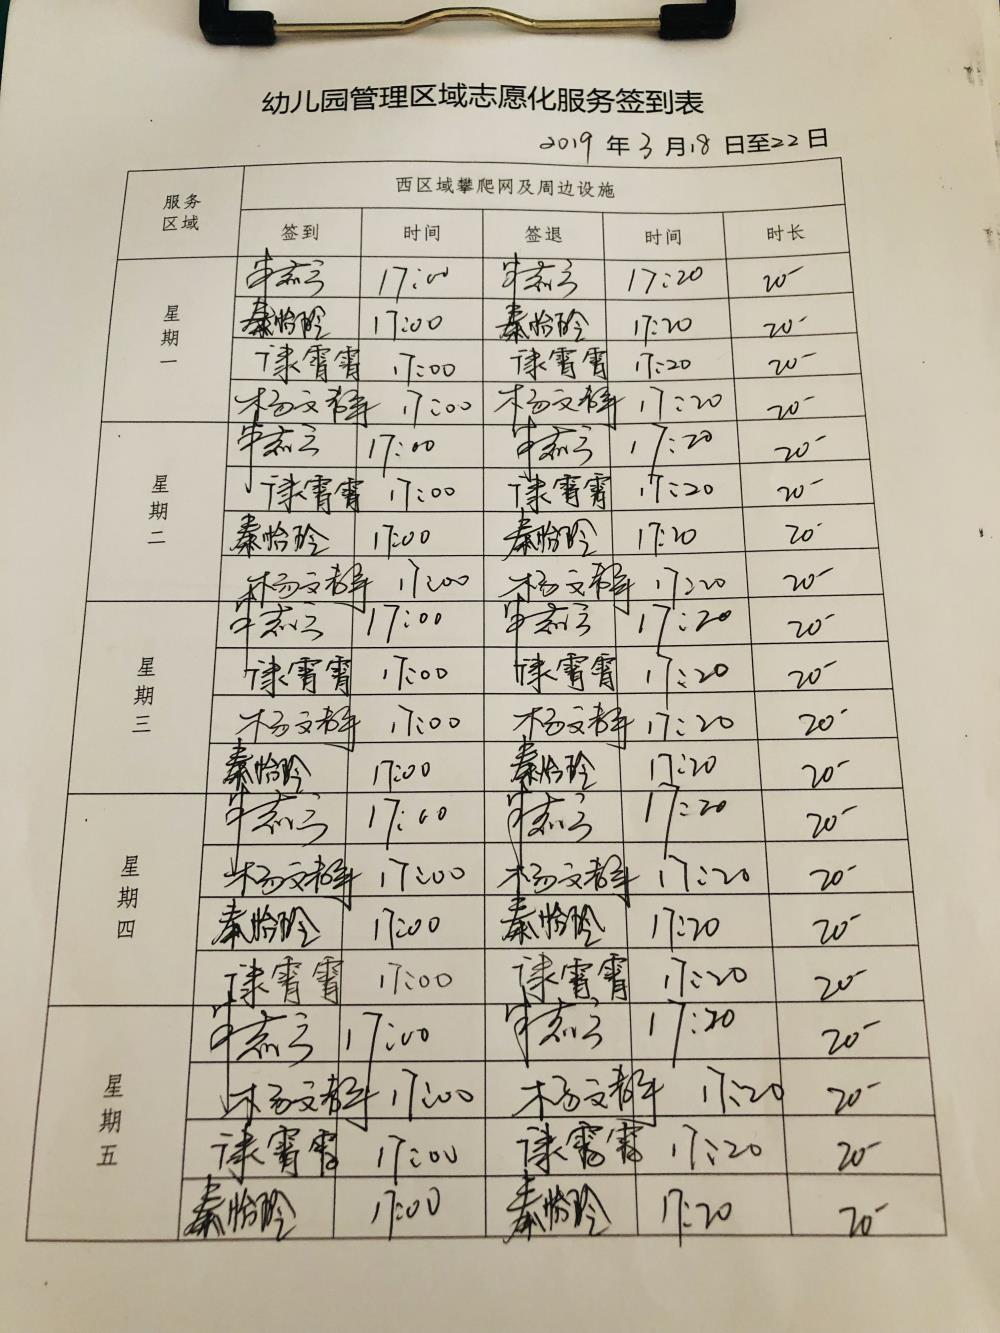 幼儿园管理区域志愿化服务签到表
2019 年 3 月 18 日至 22 日
服务区域 西区域攀爬网及周边设施
签到 时间 签退 时间 时长
星期一
17:00 17:20 20'
秦怡玲 17:00 秦怡玲 17:20 20'
康霄霄 17:00 康霄霄 17:20 20'
杨文群 17:00 杨文群 17:20 20'
星期二
17:00 17:20 20'
康霄霄 17:00 康霄霄 17:20 20'
秦怡玲 17:00 秦怡玲 17:20 20'
杨文群 17:00 杨文群 17:20 20'
星期三
17:00 17:20 20'
康霄霄 17:00 康霄霄 17:20 20'
杨文群 17:00 杨文群 17:20 20'
秦怡玲 17:00 秦怡玲 17:20 20'
星期四
17:00 17:20 20'
杨文群 17:00 杨文群 17:20 20'
秦怡玲 17:00 秦怡玲 17:20 20'
康霄霄 17:00 康霄霄 17:20 20'
星期五
17:00 17:20 20'
杨文群 17:00 杨文群 17:20 20'
康霄霄 17:00 康霄霄 17:20 20'
秦怡玲 17:00 秦怡玲 17:20 20'